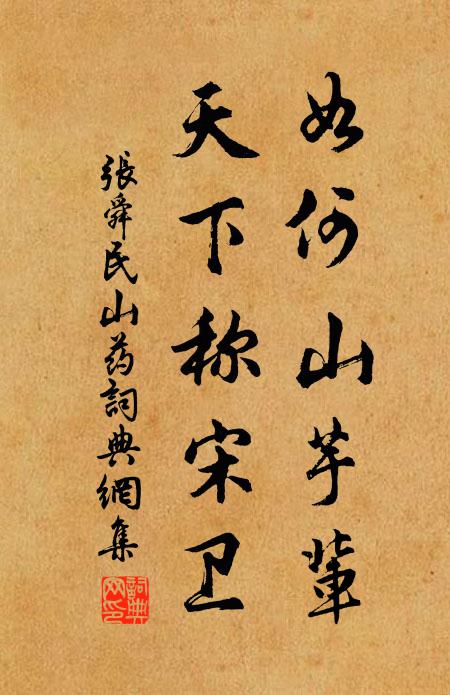 如何山芋辈
天下称宋卫
張舜民山药詞典網集
詞典網印